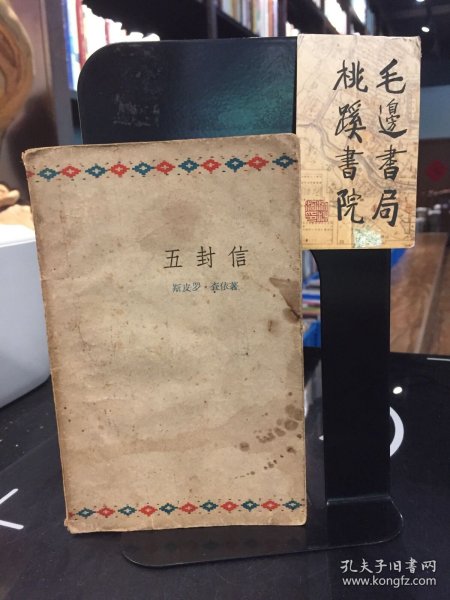 毛邊書局
桃蹊書院
五封信
斯皮罗·查依著
孔夫子旧书网
www.kongfz.com